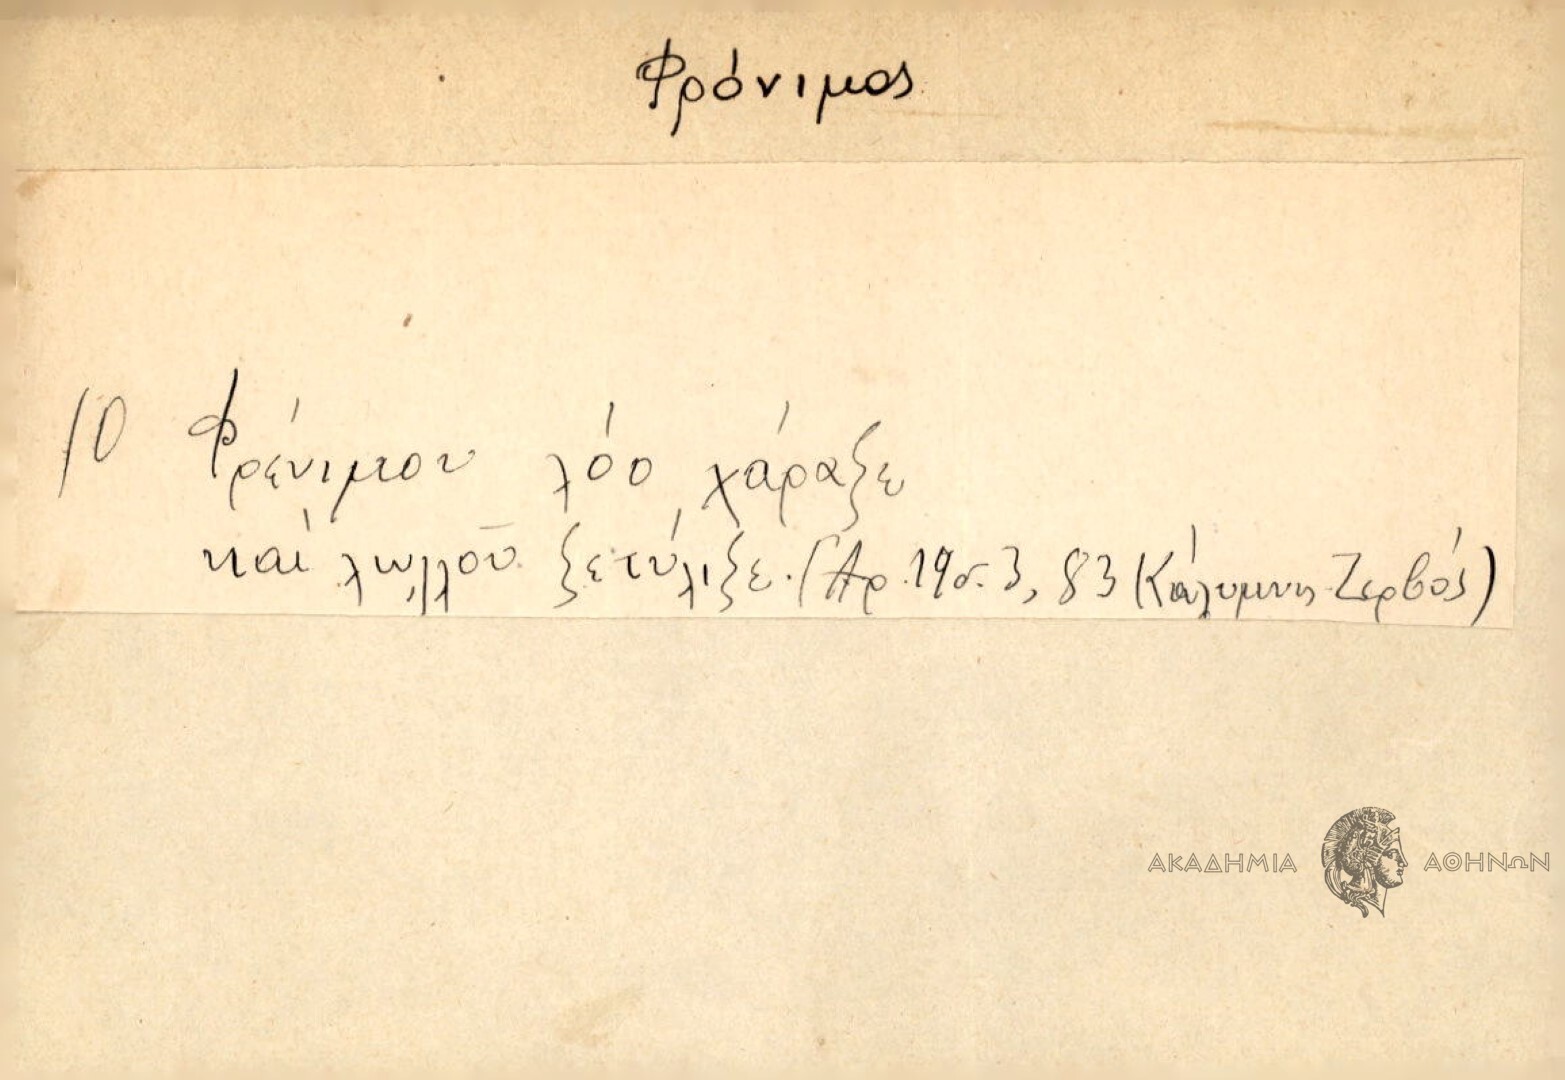 Φρόνιμος
10 Φρένιμου λόο χάραξε
καί λωλλοῦ ξετύλιξε. (Αρ. 19σ. 3, 83 (Κάλυμνης Ζερβός)
ΑΚΑΔΗΜΙΑ ΑΘΗΝΩΝ